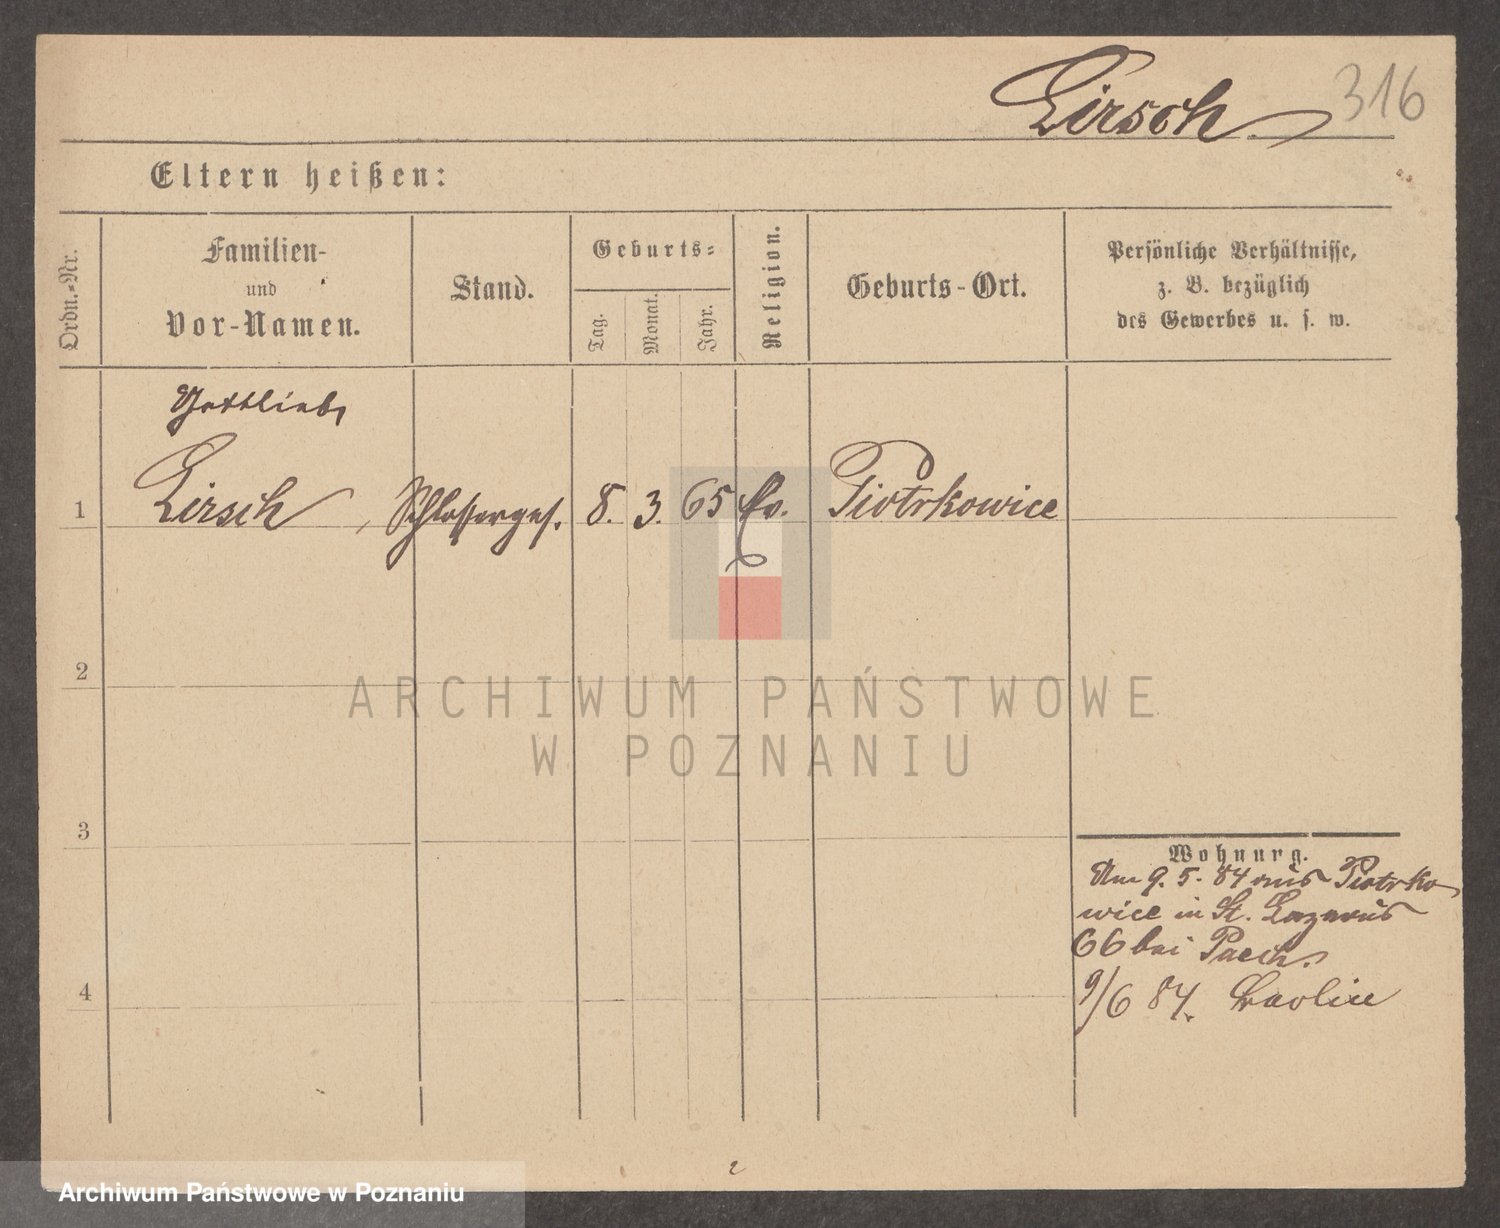 Lirsch
316
Eltern heißen:
Ordn.-Nr.
Familien-
und
Vor-Namen.
Stand.
Geburts-
Tag.
Monat.
Jahr.
Religion.
Geburts-Ort.
Persönliche Verhältnisse,
z. B. bezüglich
des Gewerbes u. s. w.
Gottlieb
1 Lirsch Schlosserges. 8. 3. 65 Ev. Piotrkowice
2
3
4
Wohnung.
Am 9. 5. 84 aus Piotrko
wice in St. Lazarus
66 bei Paech.
9/6 84.
ARCHIWUM PAŃSTWOWE
W POZNANIU
2
Archiwum Państwowe w Poznaniu